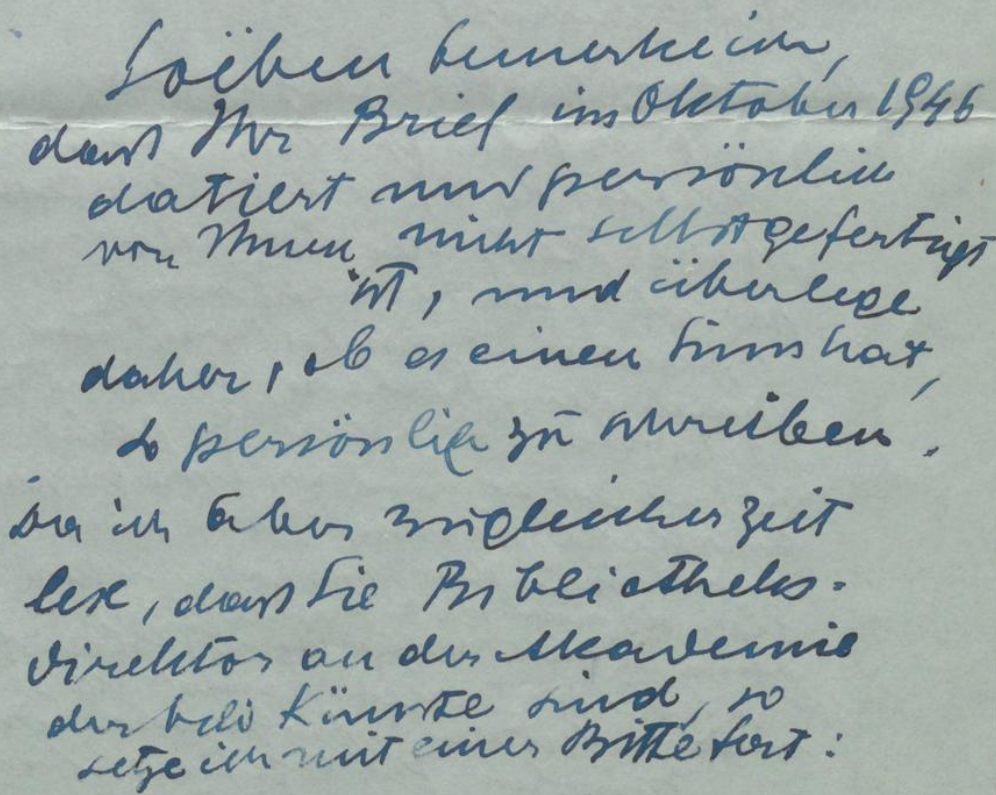 Soëben bemerke ich,
dass Ihr Brief im Oktober 1946
datiert und persönlich
von Ihnen nicht selbst gefertigt
ist, und überlege
daher, ob es einen Sinn hat,
so persönlich zu schreiben.
Da ich aber zugleicher Zeit
lese, dass Sie Bibliotheks-
direktor an der Akademie
der bild Künste sind, so
setze ich mit einer Bitte fort: